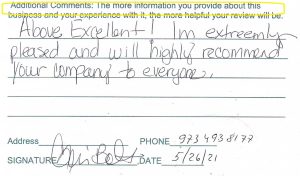 Additional Comments: The more information you provide about this
business and your experience with it, the more helpful your review will be.
Above Excellent! I'm extreemly
pleased and will highly recommend
your company to everyone.
Address PHONE 973 493 8177
SIGNATURE DATE 5/26/21